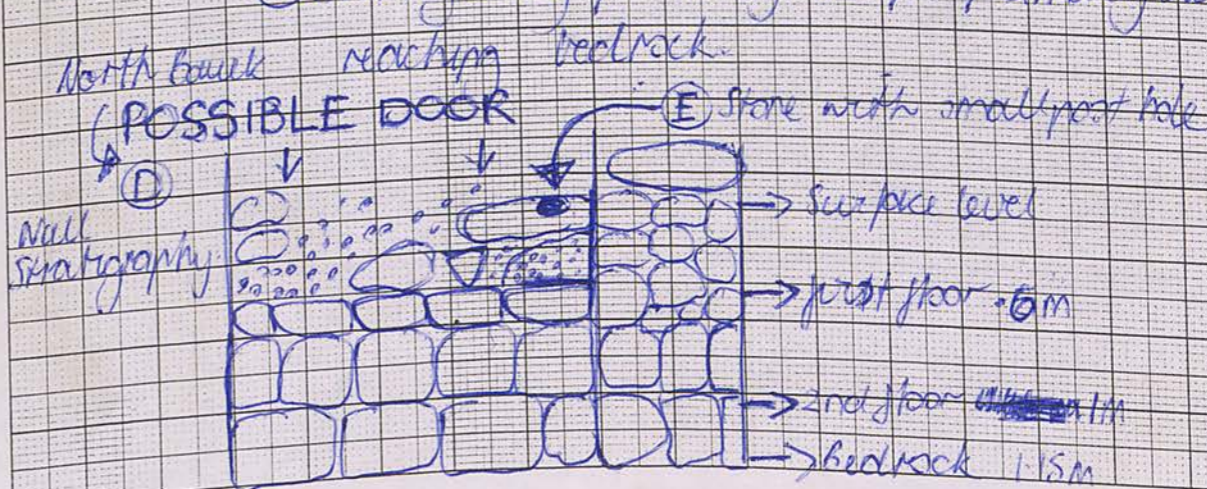 North baulk reaching bedrock.
POSSIBLE DOOR
(E) Stone with small post hole
(D)
Wall
stratigraphy
Surface level
first floor .6m
2nd floor 1m
Bedrock 1.15m